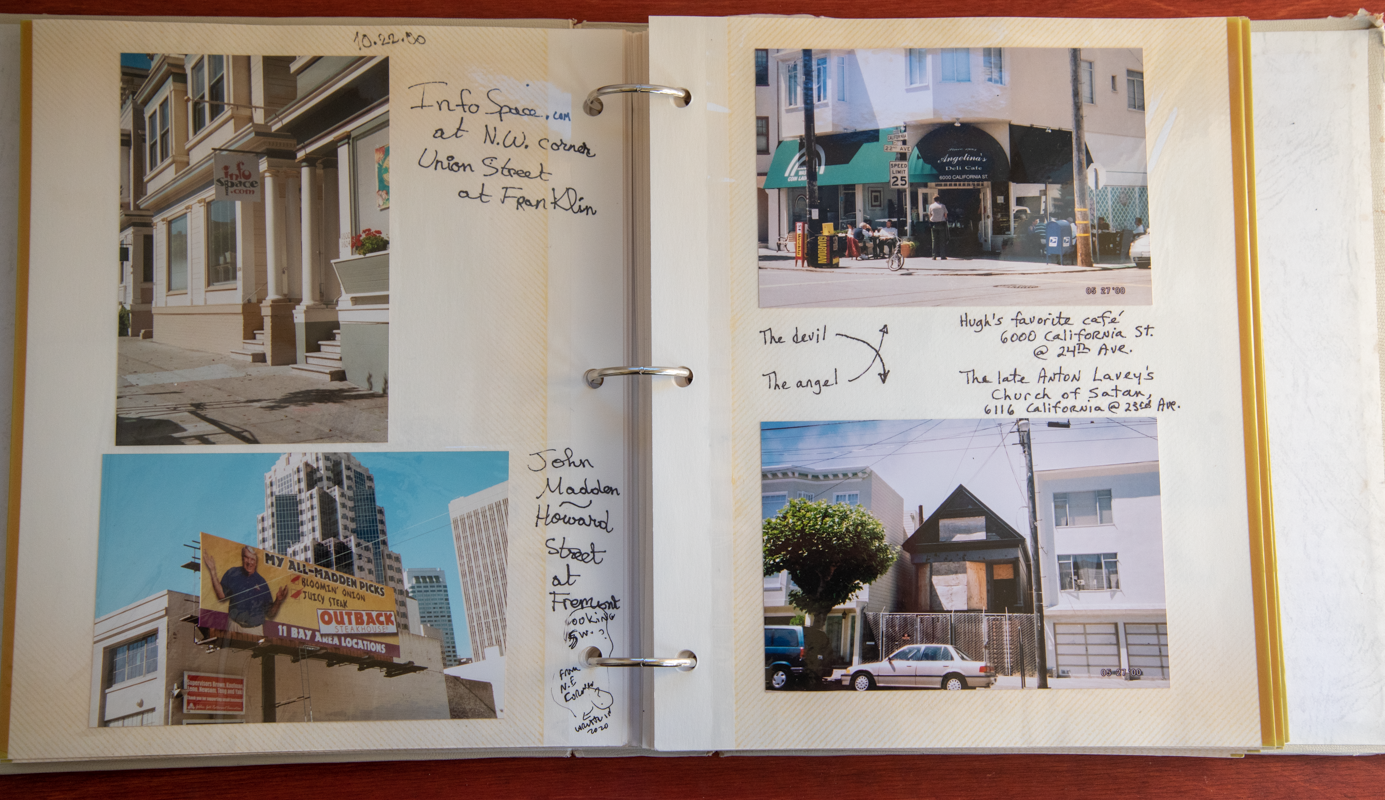 10.22.00
info
space
.com
InfoSpace.com
at N.W. corner
Union Street
at Franklin
MY ALL-MADDEN PICKS
BLOOMIN' ONION
JUICY STEAK
OUTBACK
STEAKHOUSE
11 BAY AREA LOCATIONS
John
Madden
Howard
Street
at
Fremont
looking
S.W.?
From
N.E.
Corner?
written in
2020
22ND AVE
SPEED
LIMIT
25
Angelina's
Deli Cafe
6000 CALIFORNIA ST.
GUARDIAN
05 27 '00
The devil
The angel
Hugh's favorite café
6000 California St.
@ 24th Ave.
The late Anton Lavey's
Church of Satan,
6116 California @ 23rd Ave.
05-27-'00